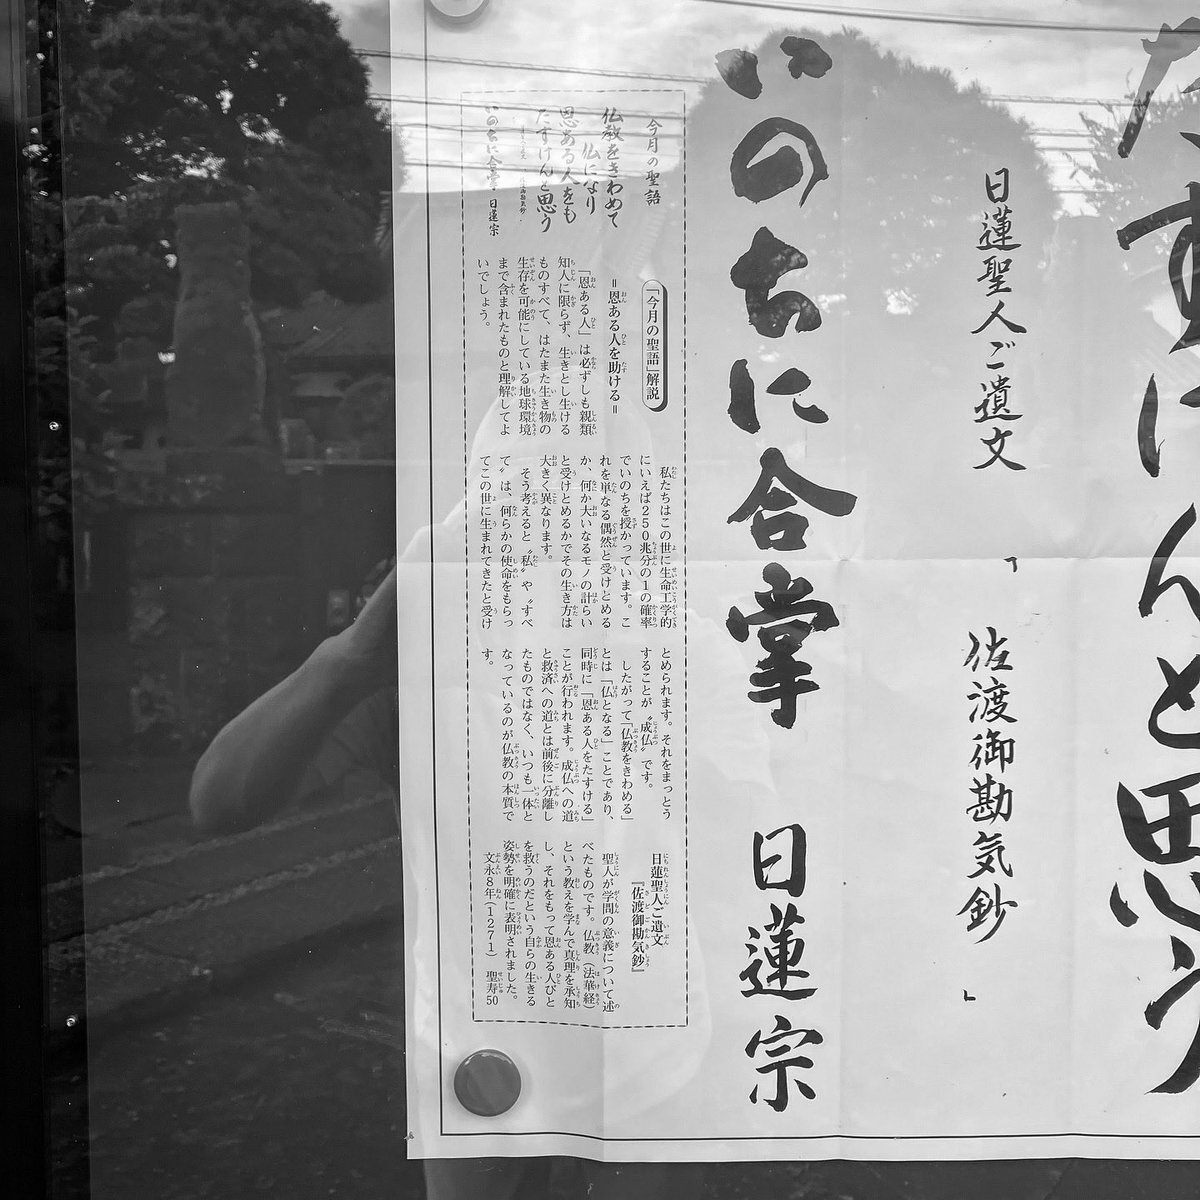 たすけんと思う
日蓮聖人ご遺文
「佐渡御勘気鈔」
いのちに合掌 日蓮宗
今月の聖語
仏教をきわめて
仏になり
恩ある人をも
たすけんと思う
いのちに合掌 日蓮宗
「今月の聖語」解説
＝恩ある人を助ける＝
「恩ある人」は必ずしも親類
知人に限らず、生きとし生ける
ものすべて、はたまた生き物の
生存を可能にしている地球環境
まで含まれたものと理解してよ
いでしょう。
私たちはこの世に生命工学的
にいえば250兆分の1の確率
でいのちを授かっています。こ
れを単なる偶然と受けとめる
か、何か大いなるモノの計らい
と受けとめるかでその生き方は
大きく異なります。
そう考えると〝私〟や〝すべ
て〟は、何らかの使命をもらっ
てこの世に生まれてきたと受け
とめられます。それをまっとう
することが〝成仏〟です。
したがって「仏教をきわめる」
とは「仏となる」ことであり、
同時に「恩ある人をたすける」
ことが行われます。成仏への道
と救済への道とは前後に分離し
たものではなく、いつも一体と
なっているのが仏教の本質で
す。
日蓮聖人ご遺文
『佐渡御勘気鈔』
聖人が学問の意義について述
べたものです。仏教（法華経）
という教えを学んで真理を承知
し、それをもって恩ある人びと
を救うのだという自らの生きる
姿勢を明確に表明されました。
文永8年（1271） 聖寿50